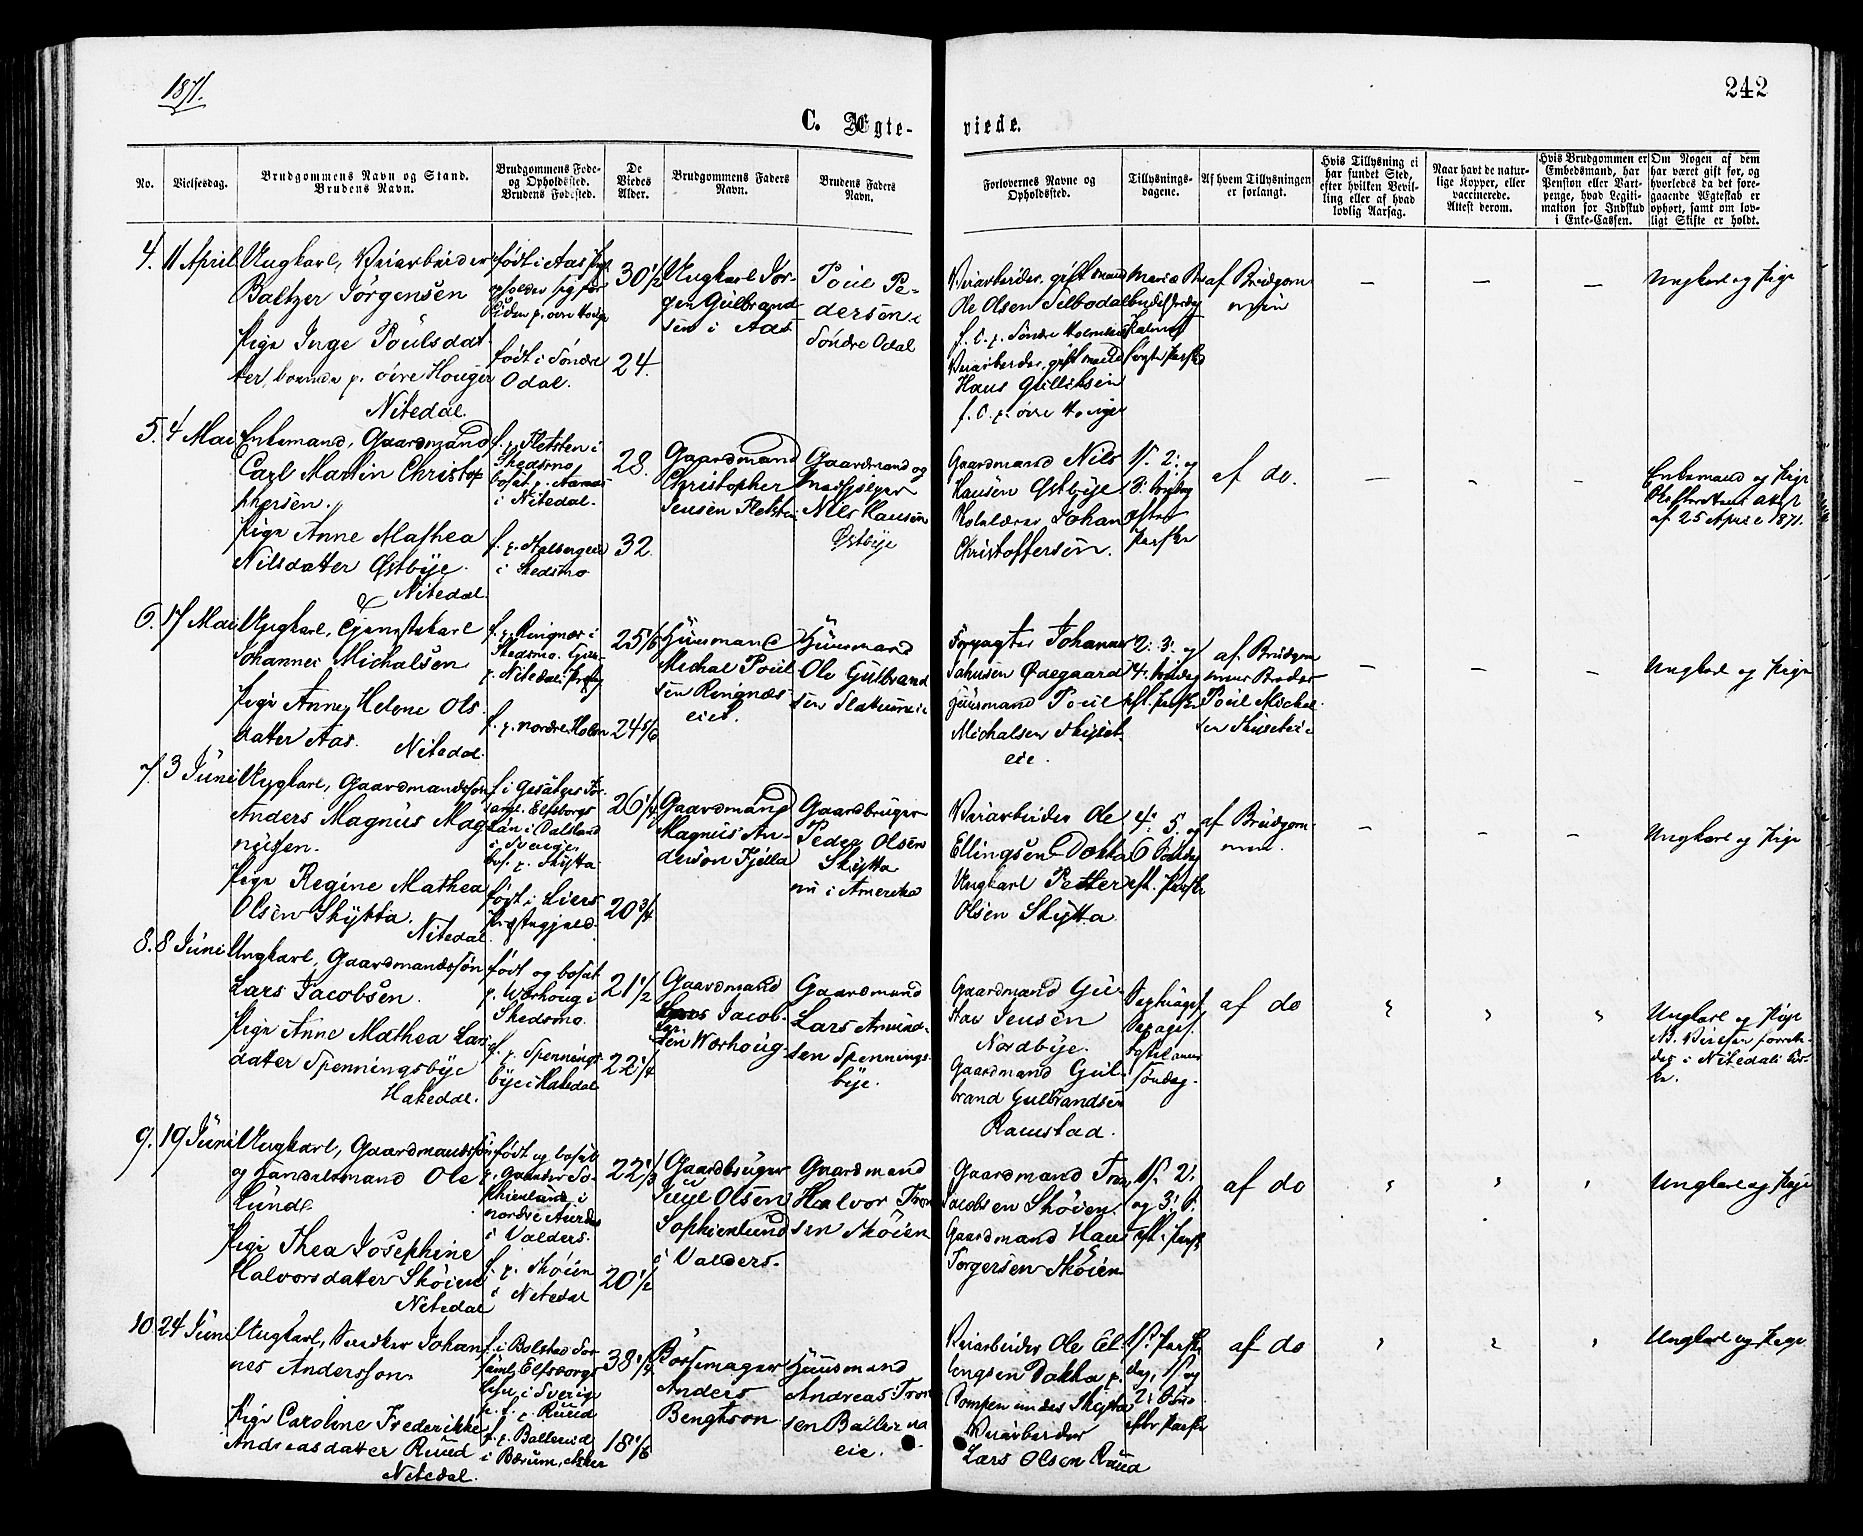 1871.
242
C. Ægte-
viede.
No.
Vielsesdag.
Brudgommens Navn og Stand.
Brudens Navn.
Brudgommens Føde-
og Opholdssted.
Brudens Fødested.
De
Viedes
Alder.
Brudgommens Faders
Navn.
Brudens Faders
Navn.
Forlovernes Navne og
Opholdssted.
Tillysnings-
dagene.
Af hvem Tillysningen
er forlangt.
Hvis Tillysning ei
har fundet Sted,
efter hvilken Bevil-
ling eller af hvad
lovlig Aarsag.
Naar havt de natur-
lige Kopper, eller
vaccinerede.
Attest derom.
Hvis Brudgommen er
Embedsmand, har
Pension eller Vart-
penge, hvad Legiti-
mation for Indskud
i Enke-Cassen.
Om Nogen af dem
har været gift før, og
hvorledes da det fore-
gaaende Ægteskab er
ophørt, samt om lov-
ligt Skifte er holdt.
4. 11 April
Ungkarl, Veiarbeider
Baltzer Jörgensen
Pige Inge Poulsdat
ter, boende p. øvre Houger
Nitedal.
født i Aas
født i Söndre
Odal.
30 1/2
24.
Ungkarl Jör-
gen Gulbrand
sen i Aas
Poul Pe-
dersen i
Söndre Odal
Veiarbeider, gift mand
Ole Olsen
Veiarbeider, gift mand
Hans Gulliksen
af Brudgom
men
– – –
Ungkarl og Pige
5. 4 Mai
Enkemand, Gaardmand
Carl Martin Christop
hersen.
Pige Anne Mathea
Nilsdatter Østbye.
Nitedal.
f. p. Fletsten i
Skedsmo
i Nitedal.
i Skedsmo
28.
32.
Gaardmand
Christopher
Jensen Fletsten
Gaardmand og
Nils Hansen
Østbye
Gaardmand Nils
Hansen Østbye
Johan
Christoffersen.
1. 2. og
3. Søndag
efter
Paaske
af do.
– – –
Enkemand og Pige
af 25 April 1871.
6. 17 Mai
Ungkarl, Tjenestekarl
Johannes Michalsen
Pige Anne Helene Ols
datter Aas.
Nitedal.
f. p. Ringnæs i
Skedsmo.
f. p. nordre Holm
25 1/6
24 5/6
Huusmand
Michal Poul
sen Ringnæs
eiet.
Huusmand
Ole Gulbrand
sen
Forpagter Johannes
Ødegaard
Huusmand Poul
Michalsen
eie.
2. 3. og
4. Søndag
eft. Paaske
af Brudgom
mens Broder
Poul Michal
sen
– – –
Ungkarl og Pige
7. 3 Juni
Ungkarl, Gaardmandssøn
Anders Magnus Mag
nusen.
Pige Regine Mathea
Olsen Skytta.
Nitedal.
Elfsborgs
Län i Dalsland
i Sverige
bos. p. Skytta
født i Liers
Præstegjeld.
26 1/4
20 3/4
Gaardmand
Magnus An-
derson
Gaardbruger
Peder Olsen
Skytta
nu i Amerika
Veiarbeider Ole
Ellingsen Dokka
Ungkarl Petter
Olsen Skytta.
4. 5. og
6 Søndag
eft. Paaske
af Brudgom-
men.
– – –
Ungkarl og Pige
8. 8 Juni
Ungkarl, Gaardmandssøn
Lars Jacobsen.
Pige Anne Mathea Lars
datter Spenningsbye
Hakedal.
født og bosat
p. Wærhoug i
Skedsmo.
f. p. Spennings
bye i Hakedal
21 1/2
22 1/4
Gaardmand
Jacob-
sen Wærhoug
Gaardmand
Lars Amund-
sen Spennings-
bye.
Gaardmand Gu-
stav Jensen
Nordbye.
Gaardmand Gul-
brand Gulbrandsen
Ramstad.
Søndag.
af do
" " "
Ungkarl og Pige
i Nitedals Kir-
ke.
9. 19 Juni
Ungkarl, Gaardmandssøn
og Handelsmand Ole
Lunde
Pige Thea Josephine
Halvorsdatter Skøien
Nitedal
født og bosat
i
nordre Aurdal
i Valders.
f. p. Skøien
i Nitedal
22 1/3
20 1/2
Gaardbruger
Olsen
Sophienlund
i Valders.
Gaardmand
Halvor Tron
sen Skøien
Gaardmand Tron
Jacobsen Skøien.
Gaardmand Hans
Torgersen Skøien
1. 2.
og 3. S.
eft. Paaske
af do
" " "
Ungkarl og Pige
10 24 Juni
Ungkarl, Snedker Johan
nes Andersson.
Pige Caroline Frederikke
Andreasdatter Ruud
Nitedal.
f. i Bolstad For
saml. Elfsborgs
Lehn, i Sverige
Ruud
f. p. Ballerud
i Bærum, Asker
38 1/4
18 1/6
Börsemager
Anders
Bengtson
Huusmand
Andreas Tron
sen
eie.
Veiarbeider Ole El-
lingsen Dokka p.
Veiarbeider
Lars Olsen Ruud
af do
" " "
Ungkarl og Pige